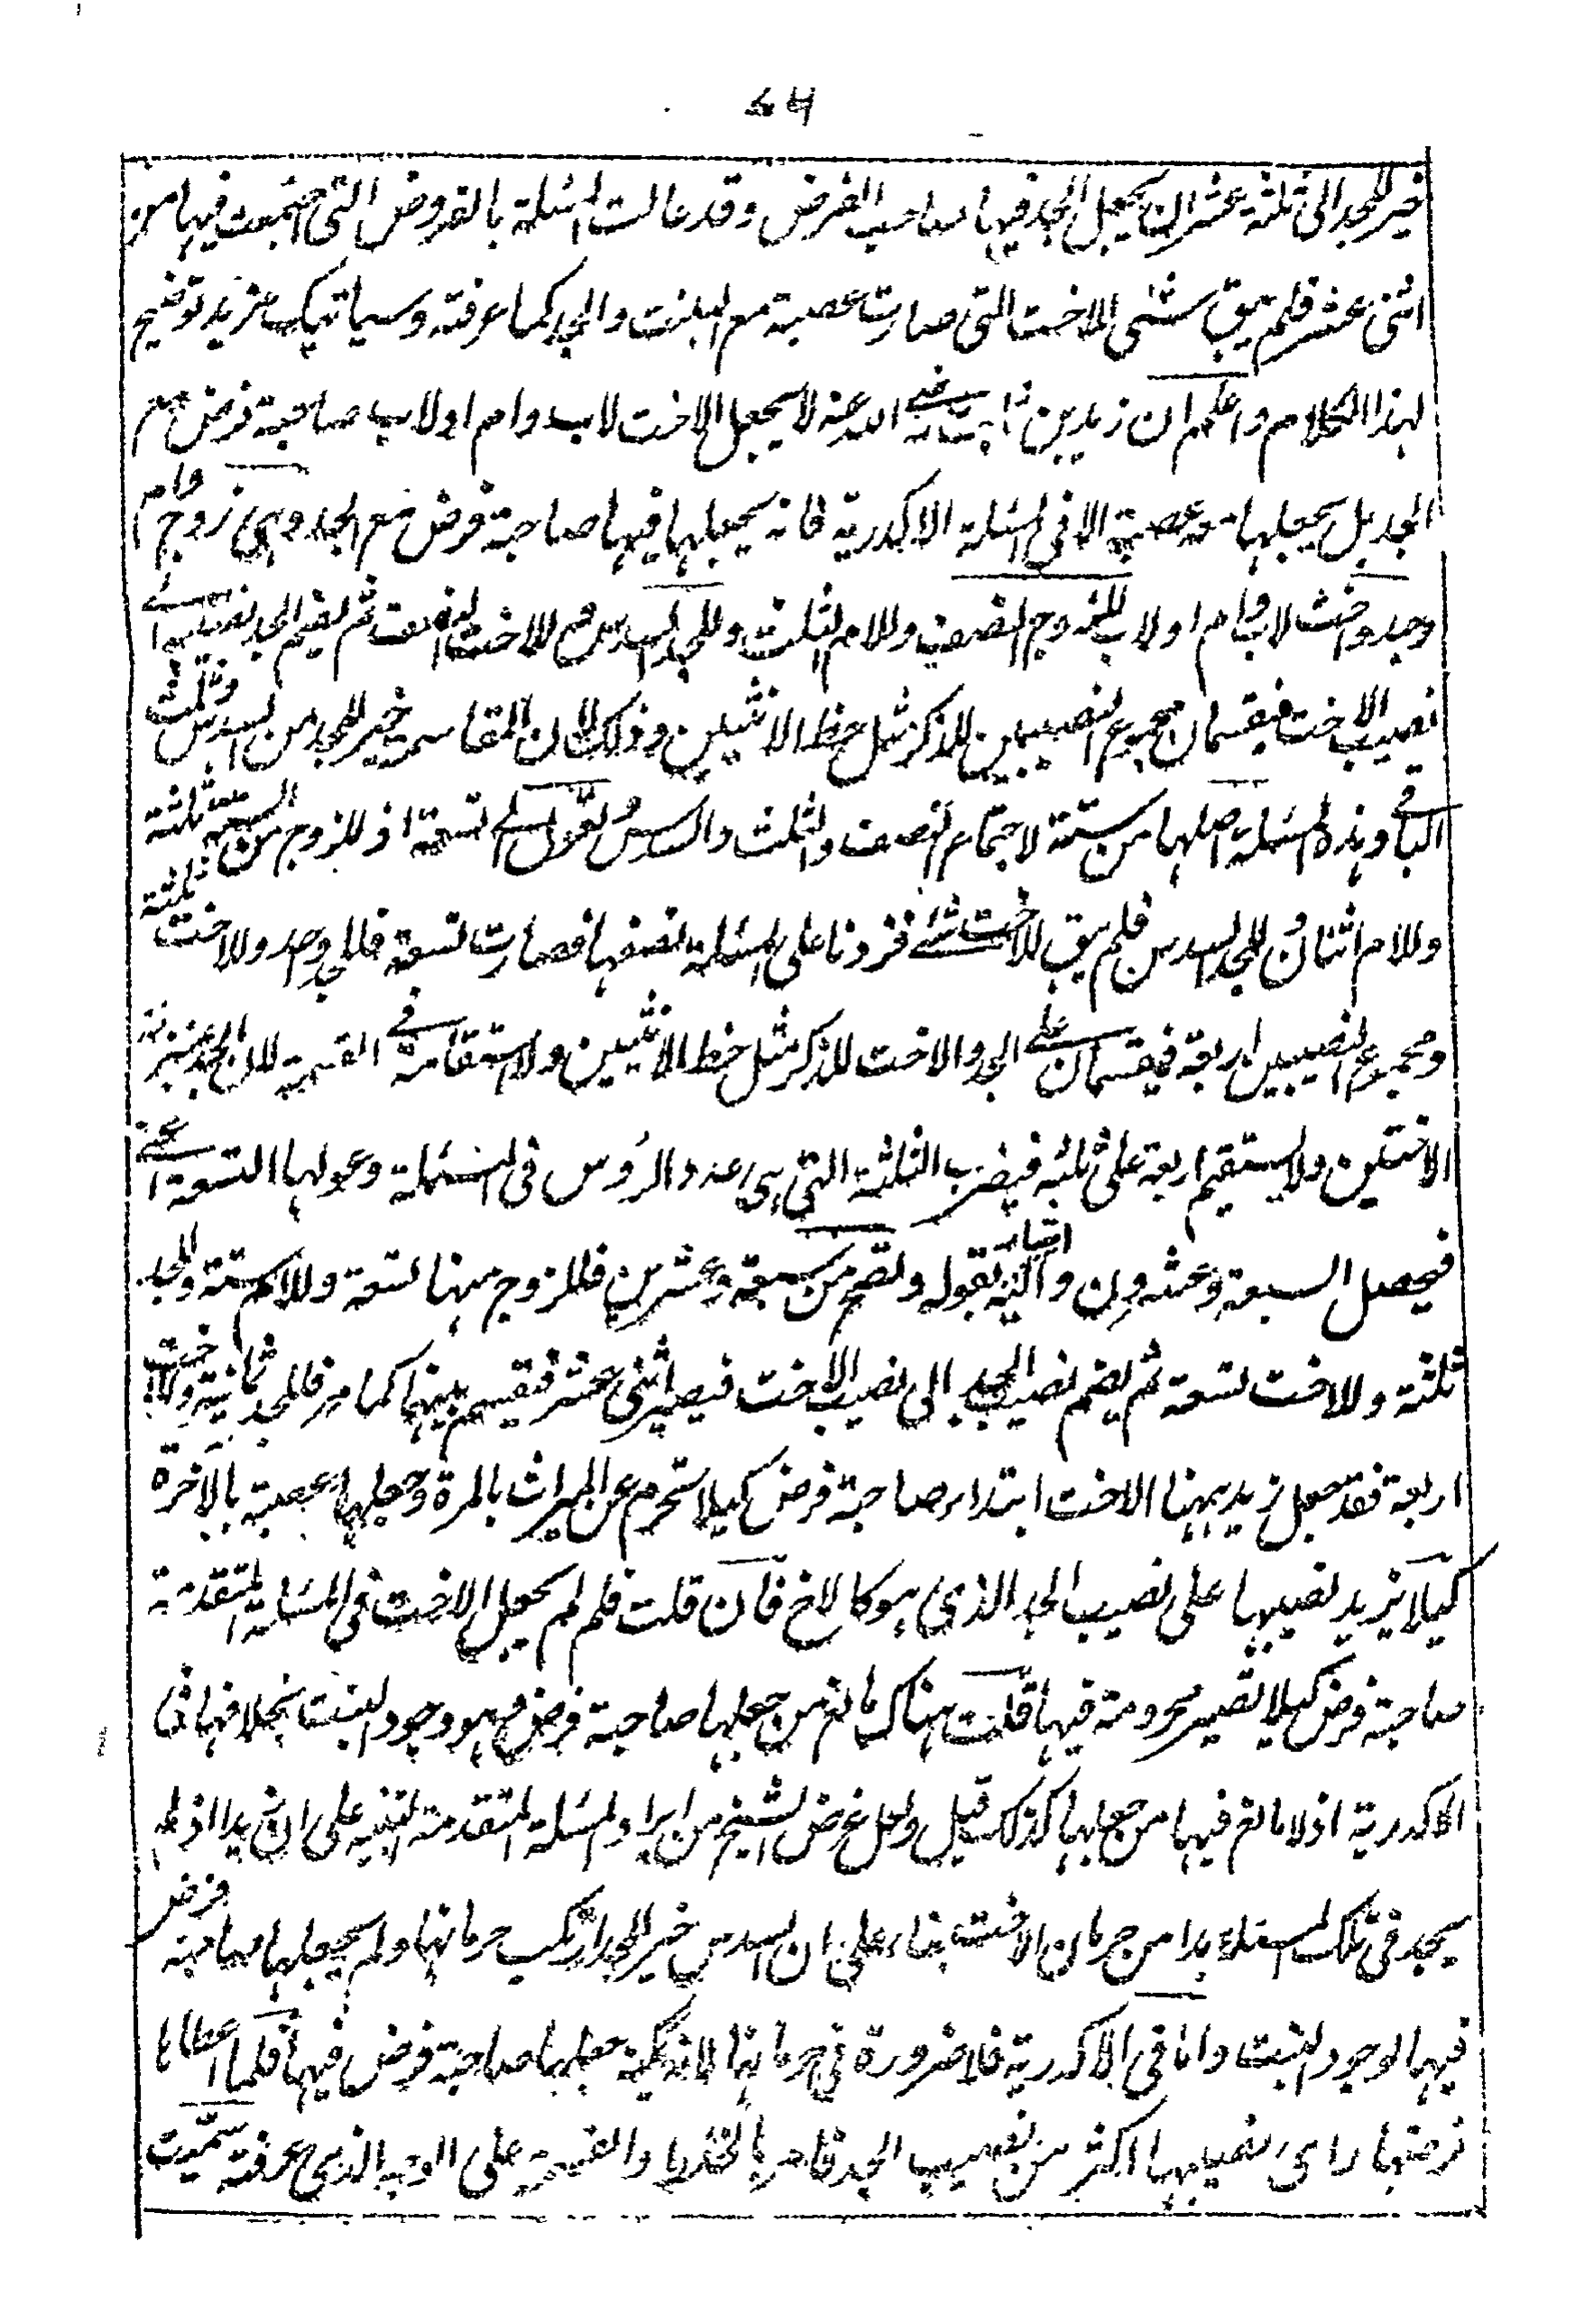 ٧٤
خير للجد الى ثلثة عشر ان يجعل الجد فيها صاحب الفرض وقد عالت المسئلة بالفروض التى اجتمعت فيها من
اثنى عشر فلم يبق شئى للاخت التى صارت عصبة مع البنت والجد كما عرفته وسياتيك مزيد توضيح
لهذا الكلام واعلم ان زيد بن ثابت رضى الله عنه لا يجعل الاخت لاب وام او لاب صاحبة فرض مع
الجد بل يجعلها معه عصبة الا فى المسئلة الاكدرية فانه يجعلها فيها صاحبة فرض مع الجد وهى زوج وام
وجد واخت لاب وام او لاب للزوج النصف وللام الثلث وللجد السدس وللاخت النصف ثم يضم الجد نصيبه الى
نصيب الاخت فيقسمان مجموع النصيبين للذكر مثل حظ الانثيين وذلك لان المقاسمة خير للجد من السدس وثلث
الباقى وهذه المسئلة اصلها من ستة لاجتماع النصف والثلث والسدس تعول الى تسعة اذ للزوج من الستة ثلثة
وللام اثنان وللجد السدس فلم يبق للاخت شئ فزدنا على المسئلة نصفها فصارت تسعة فللجد واحد وللاخت ثلثة
ومجموع النصيبين اربعة فيقسمان على الجد والاخت للذكر مثل حظ الانثيين ولا استقامة فى القسمة لان الجد بمنزلة
الاختين ولا يستقيم اربعة على ثلثة فيضرب الثلثة التى هى عدد الرؤس فى المسئلة وعولها التسعة
فيحصل السبعة وعشرون واليه اشار بقوله وتصح من سبعة وعشرين فللزوج منها تسعة وللام ستة وللجد
ثلثة وللاخت تسعة ثم يضم نصيب الجد الى نصيب الاخت فيصير اثنى عشر فتقسم بينهما كما مر فللجد ثمانية وللاخت
اربعة فقد جعل زيد ههنا الاخت ابتداء صاحبة فرض كيلا تحرم عن الميراث بالمرة وجعلها عصبة بالاخرة
كيلا يزيد نصيبها على نصيب الجد الذى هو كالاخ فان قلت فلم لم يجعل الاخت فى المسئلة المتقدمة
صاحبة فرض كيلا تصير محرومة فيها قلت هناك مانع من جعلها صاحبة فرض وهو وجود البنت بخلافها فى
الاكدرية اذ لا مانع فيها من جعلها كذلك قيل ولعل غرض الشيخ من ايراد المسئلة المتقدمة التنبيه على ان زيدا اذ لم
يجد فى تلك المسئلة بدا من حرمان الاخت بناء على ان السدس خير للجد ارتكب حرمانها ولم يجعلها صاحبة فرض
فيها لوجود البنت واما فى الاكدرية فلا ضرورة فى حرمانها لانه يمكنه جعلها صاحبة فرض فيها فلما اعطاها
فرضها راى نصيبها اكثر من نصيب الجد فامر بالخلط والقسمة على الوجه الذى عرفته سميت